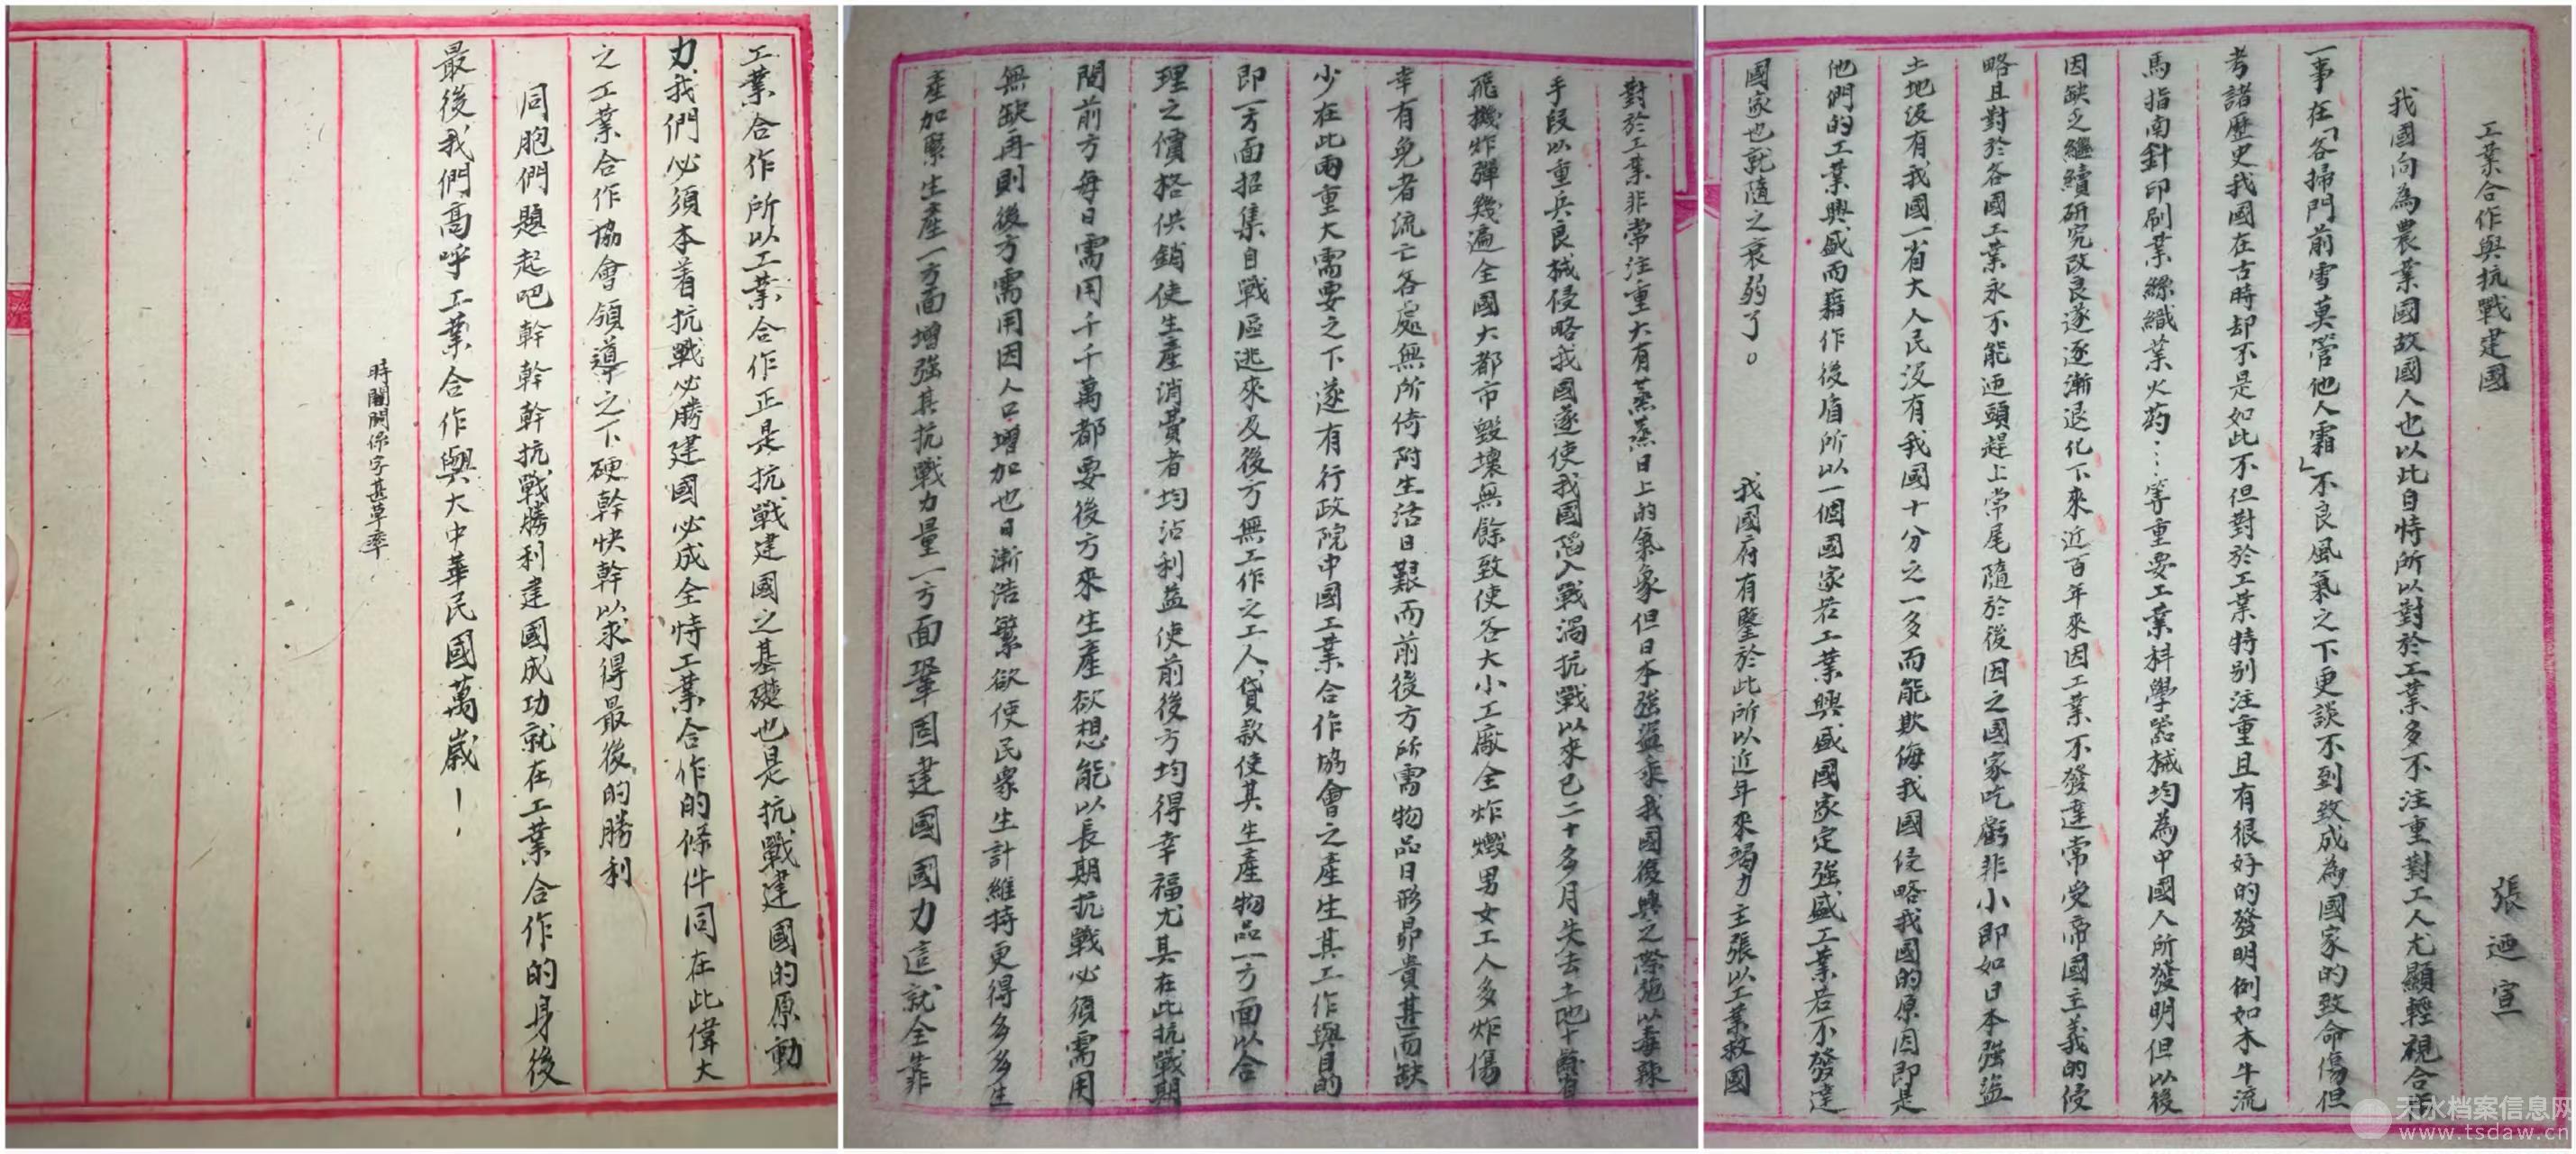 工業合作與抗戰建國
張迺宣
我國向為農業國故國人也以此自恃所以對於工業多不注重對工人尤顯輕視合作
一事在「各掃門前雪莫管他人霜」不良風氣之下更談不到致成為國家的致命傷但
考諸歷史我國在古時却不是如此不但對於工業特别注重且有很好的發明例如木牛流
馬指南針印刷業絲織業火葯……等重要工業科學器械均為中國人所發明但以後
因缺乏繼續研究改良遂逐漸退化下來近百年來因工業不發達常受帝國主義的侵
略且對於各國工業永不能迎頭趕上常尾隨於後因之國家吃虧非小即如日本強盜
土地没有我國一省大人民没有我國十分之一多而能欺侮我國侵略我國的原因即是
他們的工業興盛而藉作後盾所以一個國家若工業興盛國家定強盛工業若不發達
國家也就隨之衰弱了。 我國府有鑒於此所以近年來竭力主張以工業救國
對於工業非常注重大有蒸蒸日上的氣象但日本強盜乘我國復興之際施以毒辣
手段以重兵良械侵略我國遂使我國陷入戰渦抗戰以來已二十多月失去土地十餘省
飛機炸彈幾遍全國大都市毀壞無餘致使各大小工廠全炸燬男女工人多炸傷
幸有免者流亡各處無所倚附生活日艱而前後方所需物品日形昴貴甚而缺
少在此兩重大需要之下遂有行政院中國工業合作協會之產生其工作與目的
即一方面招集自戰區逃來及後方無工作之工人貸款使其生產物品一方面以合
理之價格供銷使生產消費者均沾利益使前後方均得幸福尤其在此抗戰期
間前方每日需用千千萬都要後方來生產欲想能以長期抗戰必須需用
無缺再則後方需用因人口增加也日漸浩繁欲使民衆生計維持更得多多生
產加緊生產一方面增強其抗戰力量一方面鞏固建國國力這就全靠
工業合作所以工業合作正是抗戰建國之基礎也是抗戰建國的原動
力我們必須本着抗戰必勝建國必成全恃工業合作的條件同在此偉大
之工業合作協會領導之下硬幹快幹以求得最後的勝利
同胞們題起吧幹幹幹抗戰勝利建國成功就在工業合作的身後
最後我們高呼工業合作與大中華民國萬歲！
時間關係字甚草率
天水档案信息网
www.tsdaw.cn